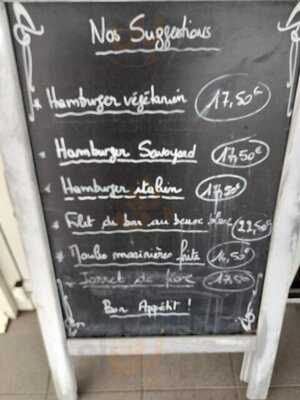 Nos Suggestions
Hamburger végétarien 17,50€
Hamburger Savoyard 17,50€
Hamburger italien 17,50€
Filet de bar au beurre blanc 22,50€
Moules marinières frite 14,50€
Jarret de porc 17,50
Bon Appétit !